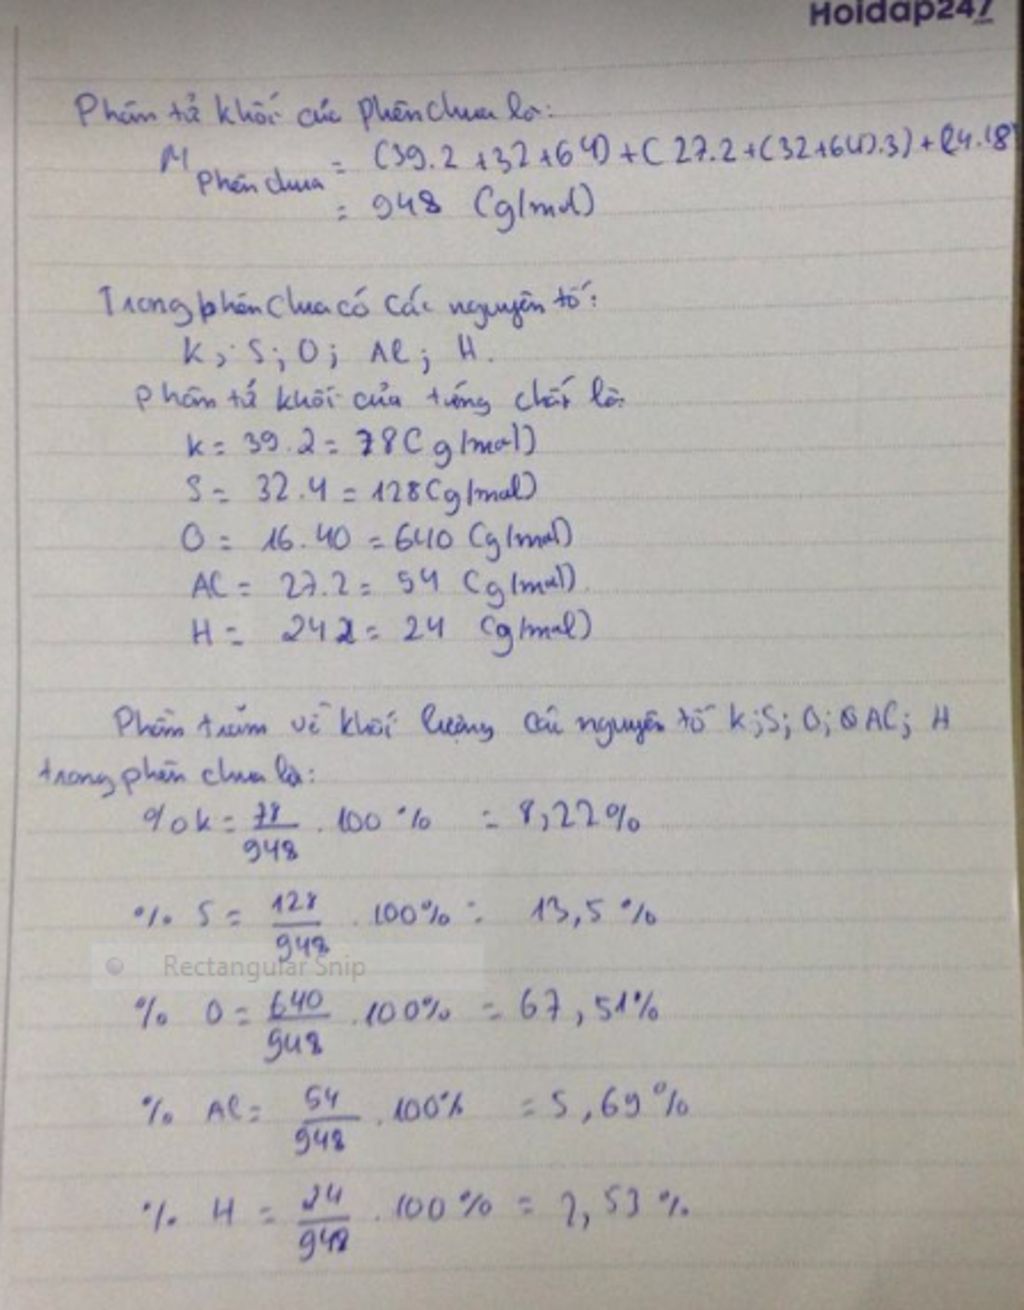 Hoidap247
Phân tử khối của phèn chua là:
M phèn chua = (39.2 +32+64)+(27.2+(32+64).3)+24.18
= 948 (g/mol)
Trong phèn chua có các nguyên tố:
K; S; O; Al; H.
phân tử khối của từng chất là:
K = 39.2 = 78(g/mol)
S = 32.4 = 128(g/mol)
O = 16.40 = 640 (g/mol)
Al = 27.2 = 54 (g/mol)
H = 24 = 24 (g/mol)
Phần trăm về khối lượng các nguyên tố K;S; O; Al; H
trong phèn chua là:
% K = 78/948 . 100 % = 8,22%
% S = 128/948 . 100% = 13,5 %
Rectangular Snip
% O = 640/948 . 100% = 67,51%
% Al = 54/948 . 100% = 5,69%
% H = 24/948 . 100% = 2,53 %